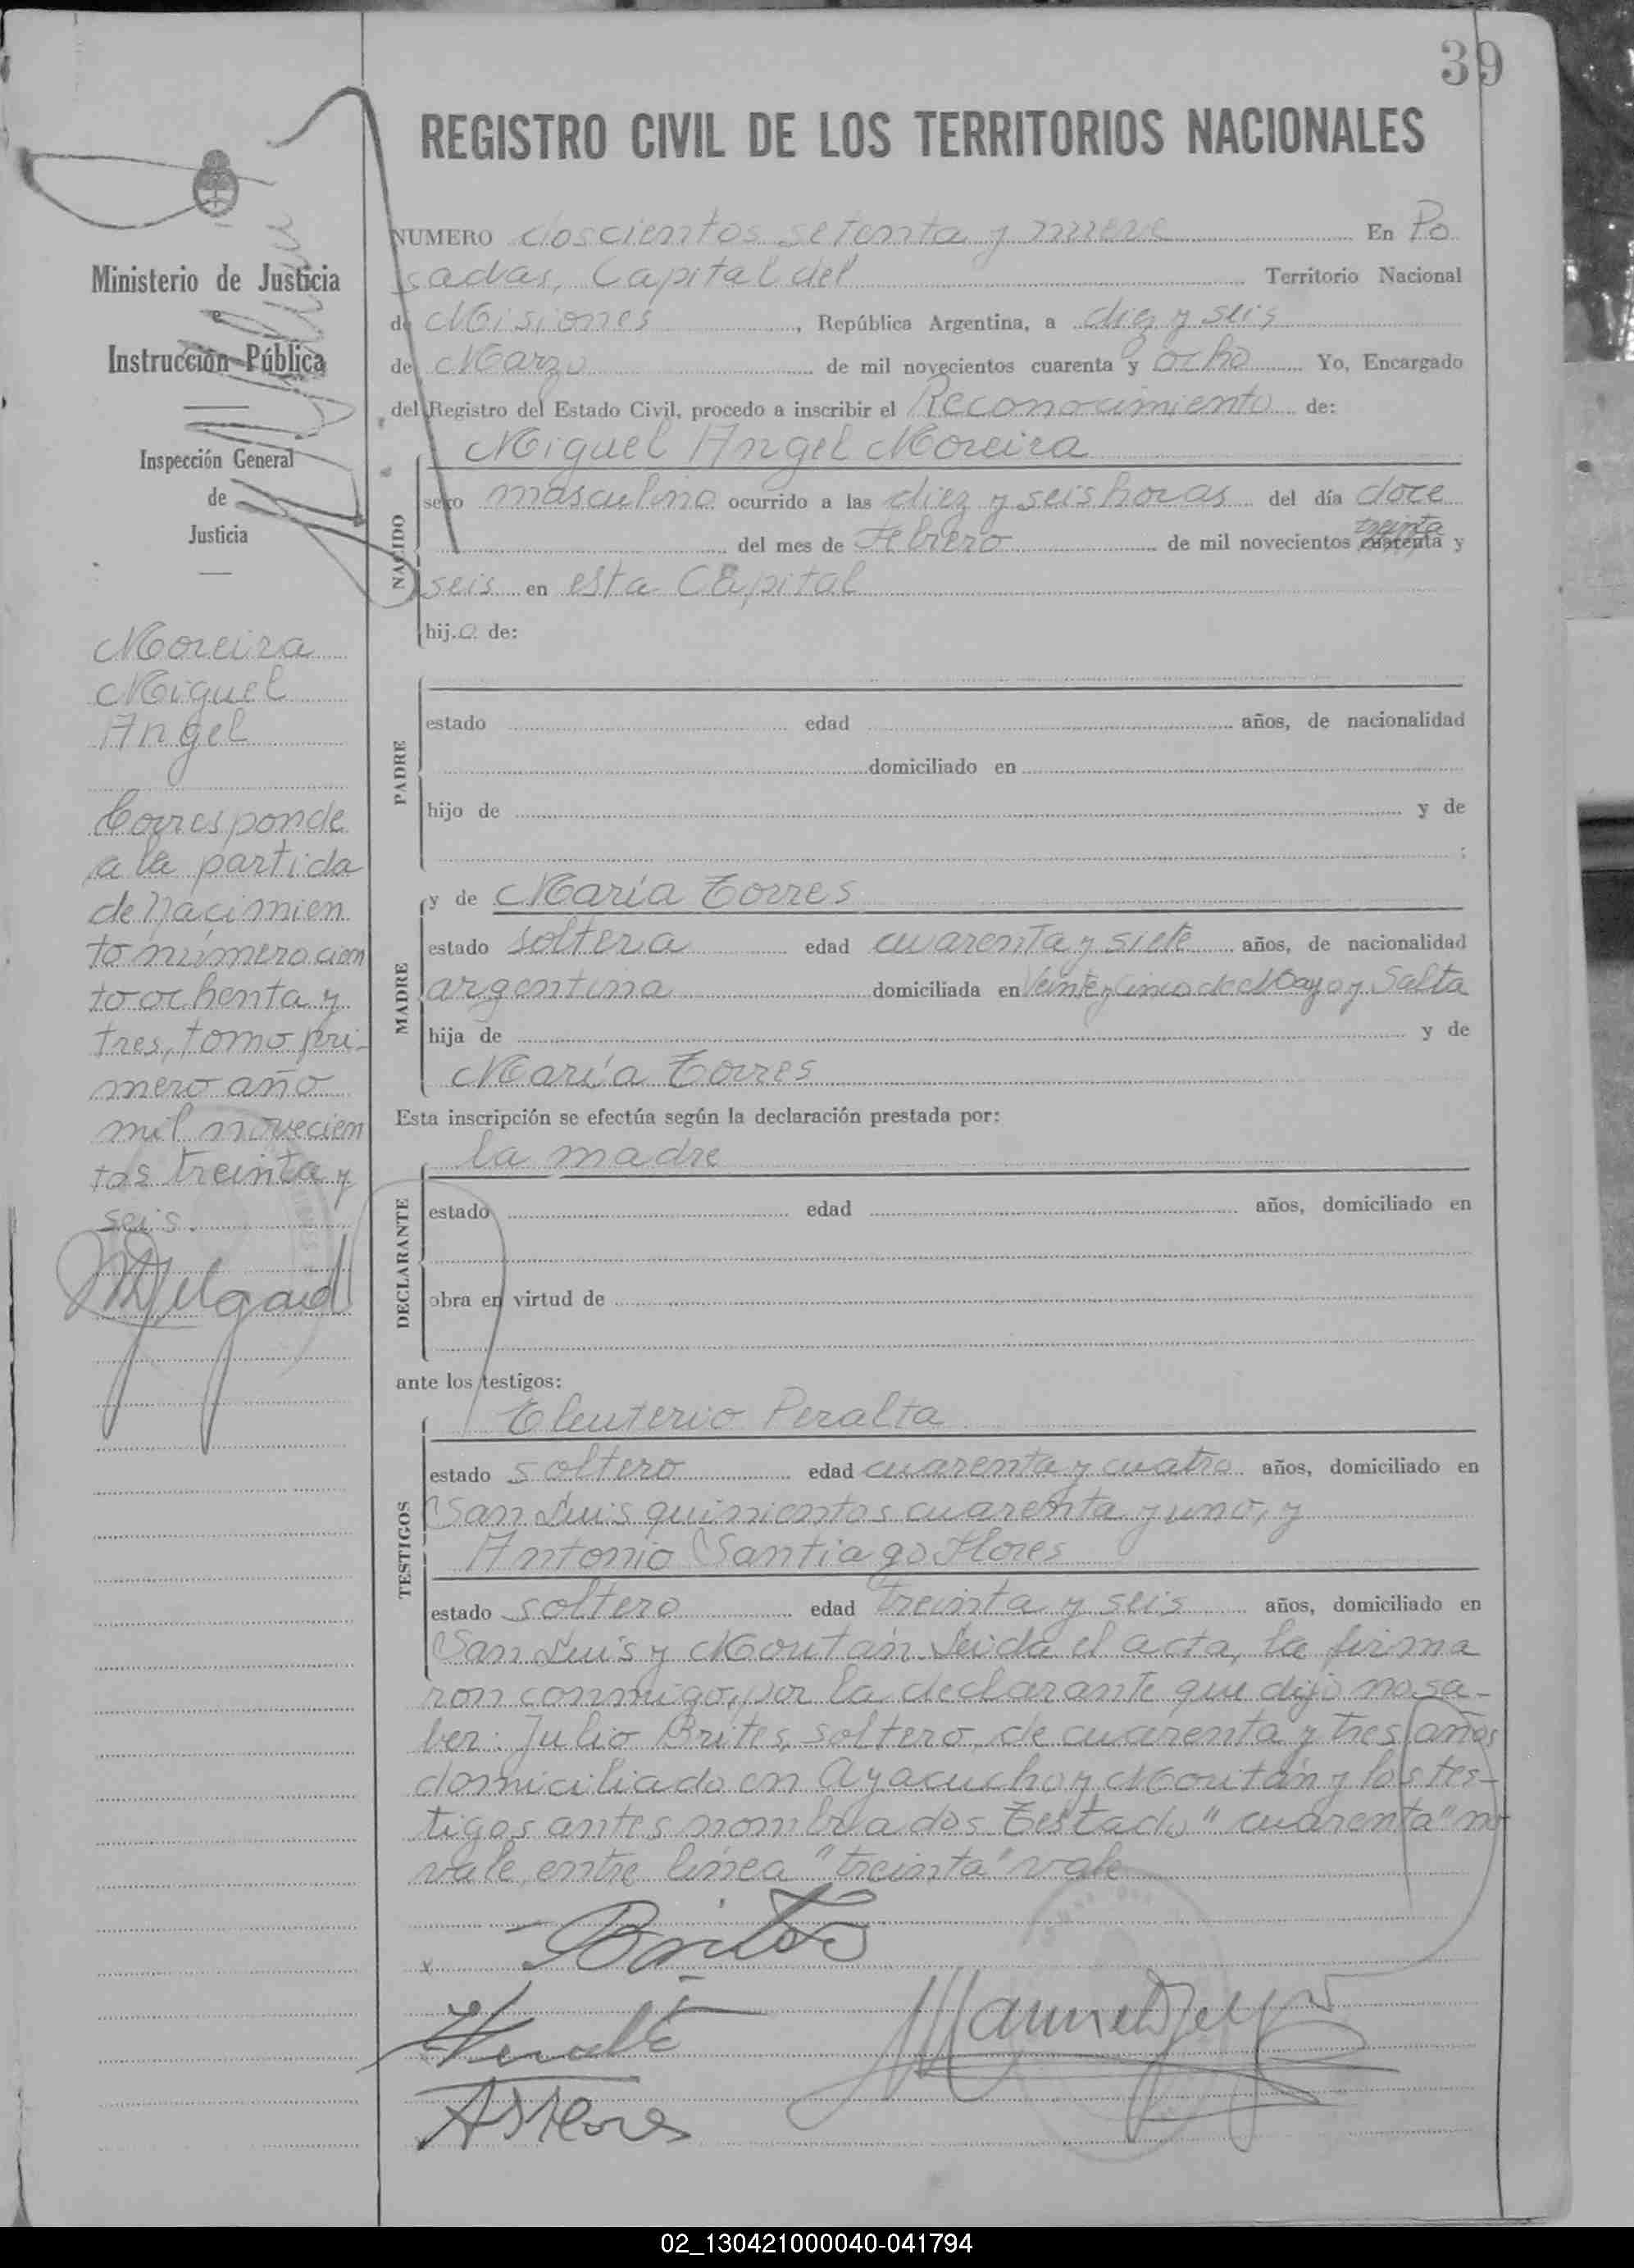 39
REGISTRO CIVIL DE LOS TERRITORIOS NACIONALES
NUMERO doscientos setenta y nueve En Po
sadas, Capital del Territorio Nacional
de Misiones, República Argentina, a diez y seis
de Marzo de mil novecientos cuarenta y ocho Yo, Encargado
del Registro del Estado Civil, procedo a inscribir el Reconocimiento de:
Miguel Angel Moreira
NACIDO
sexo masculino ocurrido a las diez y seis horas del día doce
del mes de Febrero de mil novecientos cuarenta treinta y
seis en esta Capital
hijo de:
PADRE
estado edad años, de nacionalidad
domiciliado en
hijo de y de
;
MADRE
y de María Torres
estado soltera edad cuarenta y siete años, de nacionalidad
argentina domiciliada en Veinte y Cinco de Mayo y Salta
hija de y de
María Torres
Esta inscripción se efectúa según la declaración prestada por:
la madre
DECLARANTE
estado edad años, domiciliado en
obra en virtud de
ante los testigos:
TESTIGOS
Eleuterio Peralta
estado soltero edad cuarenta y cuatro años, domiciliado en
San Luis quinientos cuarenta y uno, y
Antonio Santiago Flores
estado soltero edad treinta y seis años, domiciliado en
San Luis y Moritán. Leida el acta, la firma
ron conmigo, por la declarante que dijo no sa-
ber: Julio Brites, soltero, de cuarenta y tres años
domiciliado en Ayacucho y Moritán y los tes-
tigos antes nombrados Testado "cuarenta" no
vale, entre línea "treinta" vale
Brites
A S Flores
Ministerio de Justicia
e
Instrucción Pública
Inspección General
de
Justicia
Moreira
Miguel
Angel
Corresponde
a la partida
de nacimien
to número cien
to ochenta y
tres, tomo pri-
mero año
mil novecien
tos treinta y
seis.
02_130421000040-041794